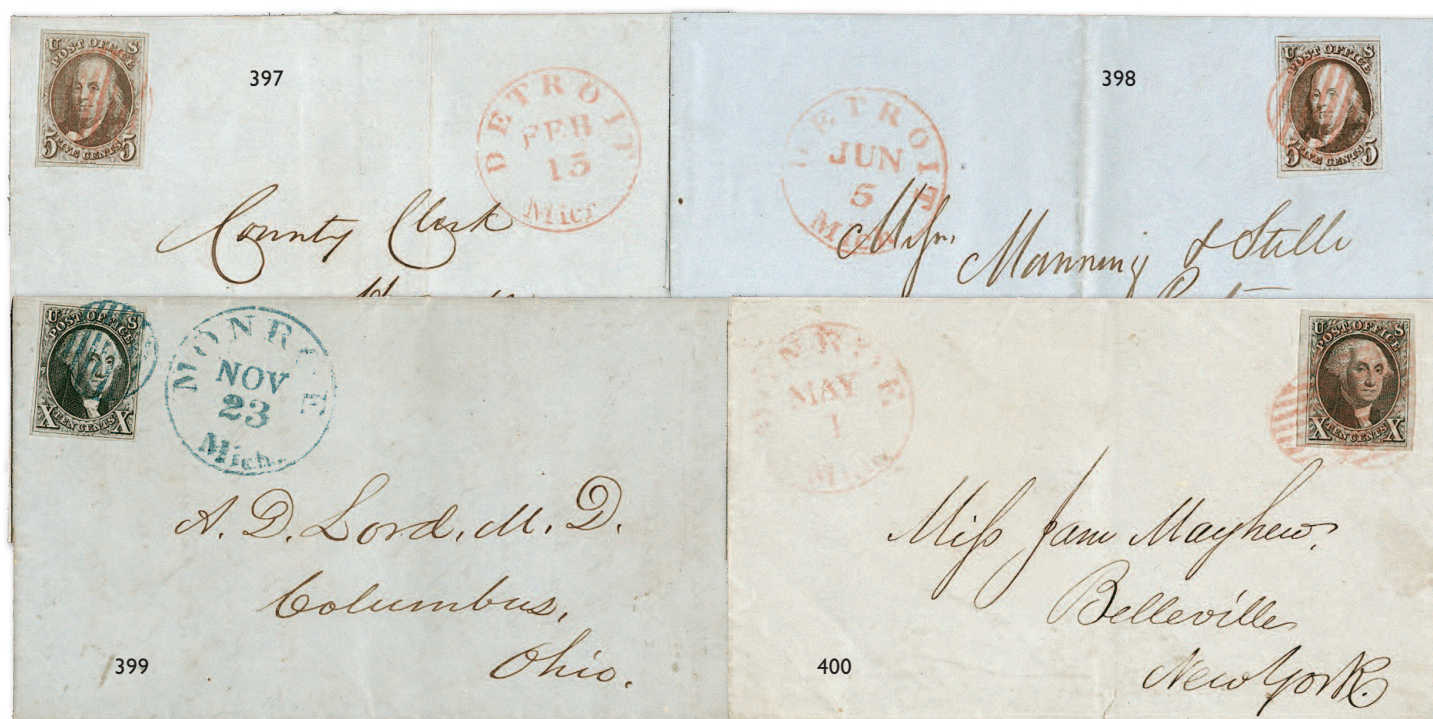 U S
POST OFFICE
5 FIVE CENTS 5
397
DETROIT
FEB
15
Mich
County Clerk
398
U S
POST OFFICE
5 FIVE CENTS 5
DETROIT
JUN
5
Mich
Messrs. Manning & Stille
U S
POST OFFICE
X TEN CENTS X
MONROE
NOV
23
Mich.
A. D. Lord, M. D.
Columbus,
Ohio.
399
MONROE
MAY
1
Mich.
U S
POST OFFICE
X TEN CENTS X
Miss Jane Mayhew,
Belleville
New York.
400